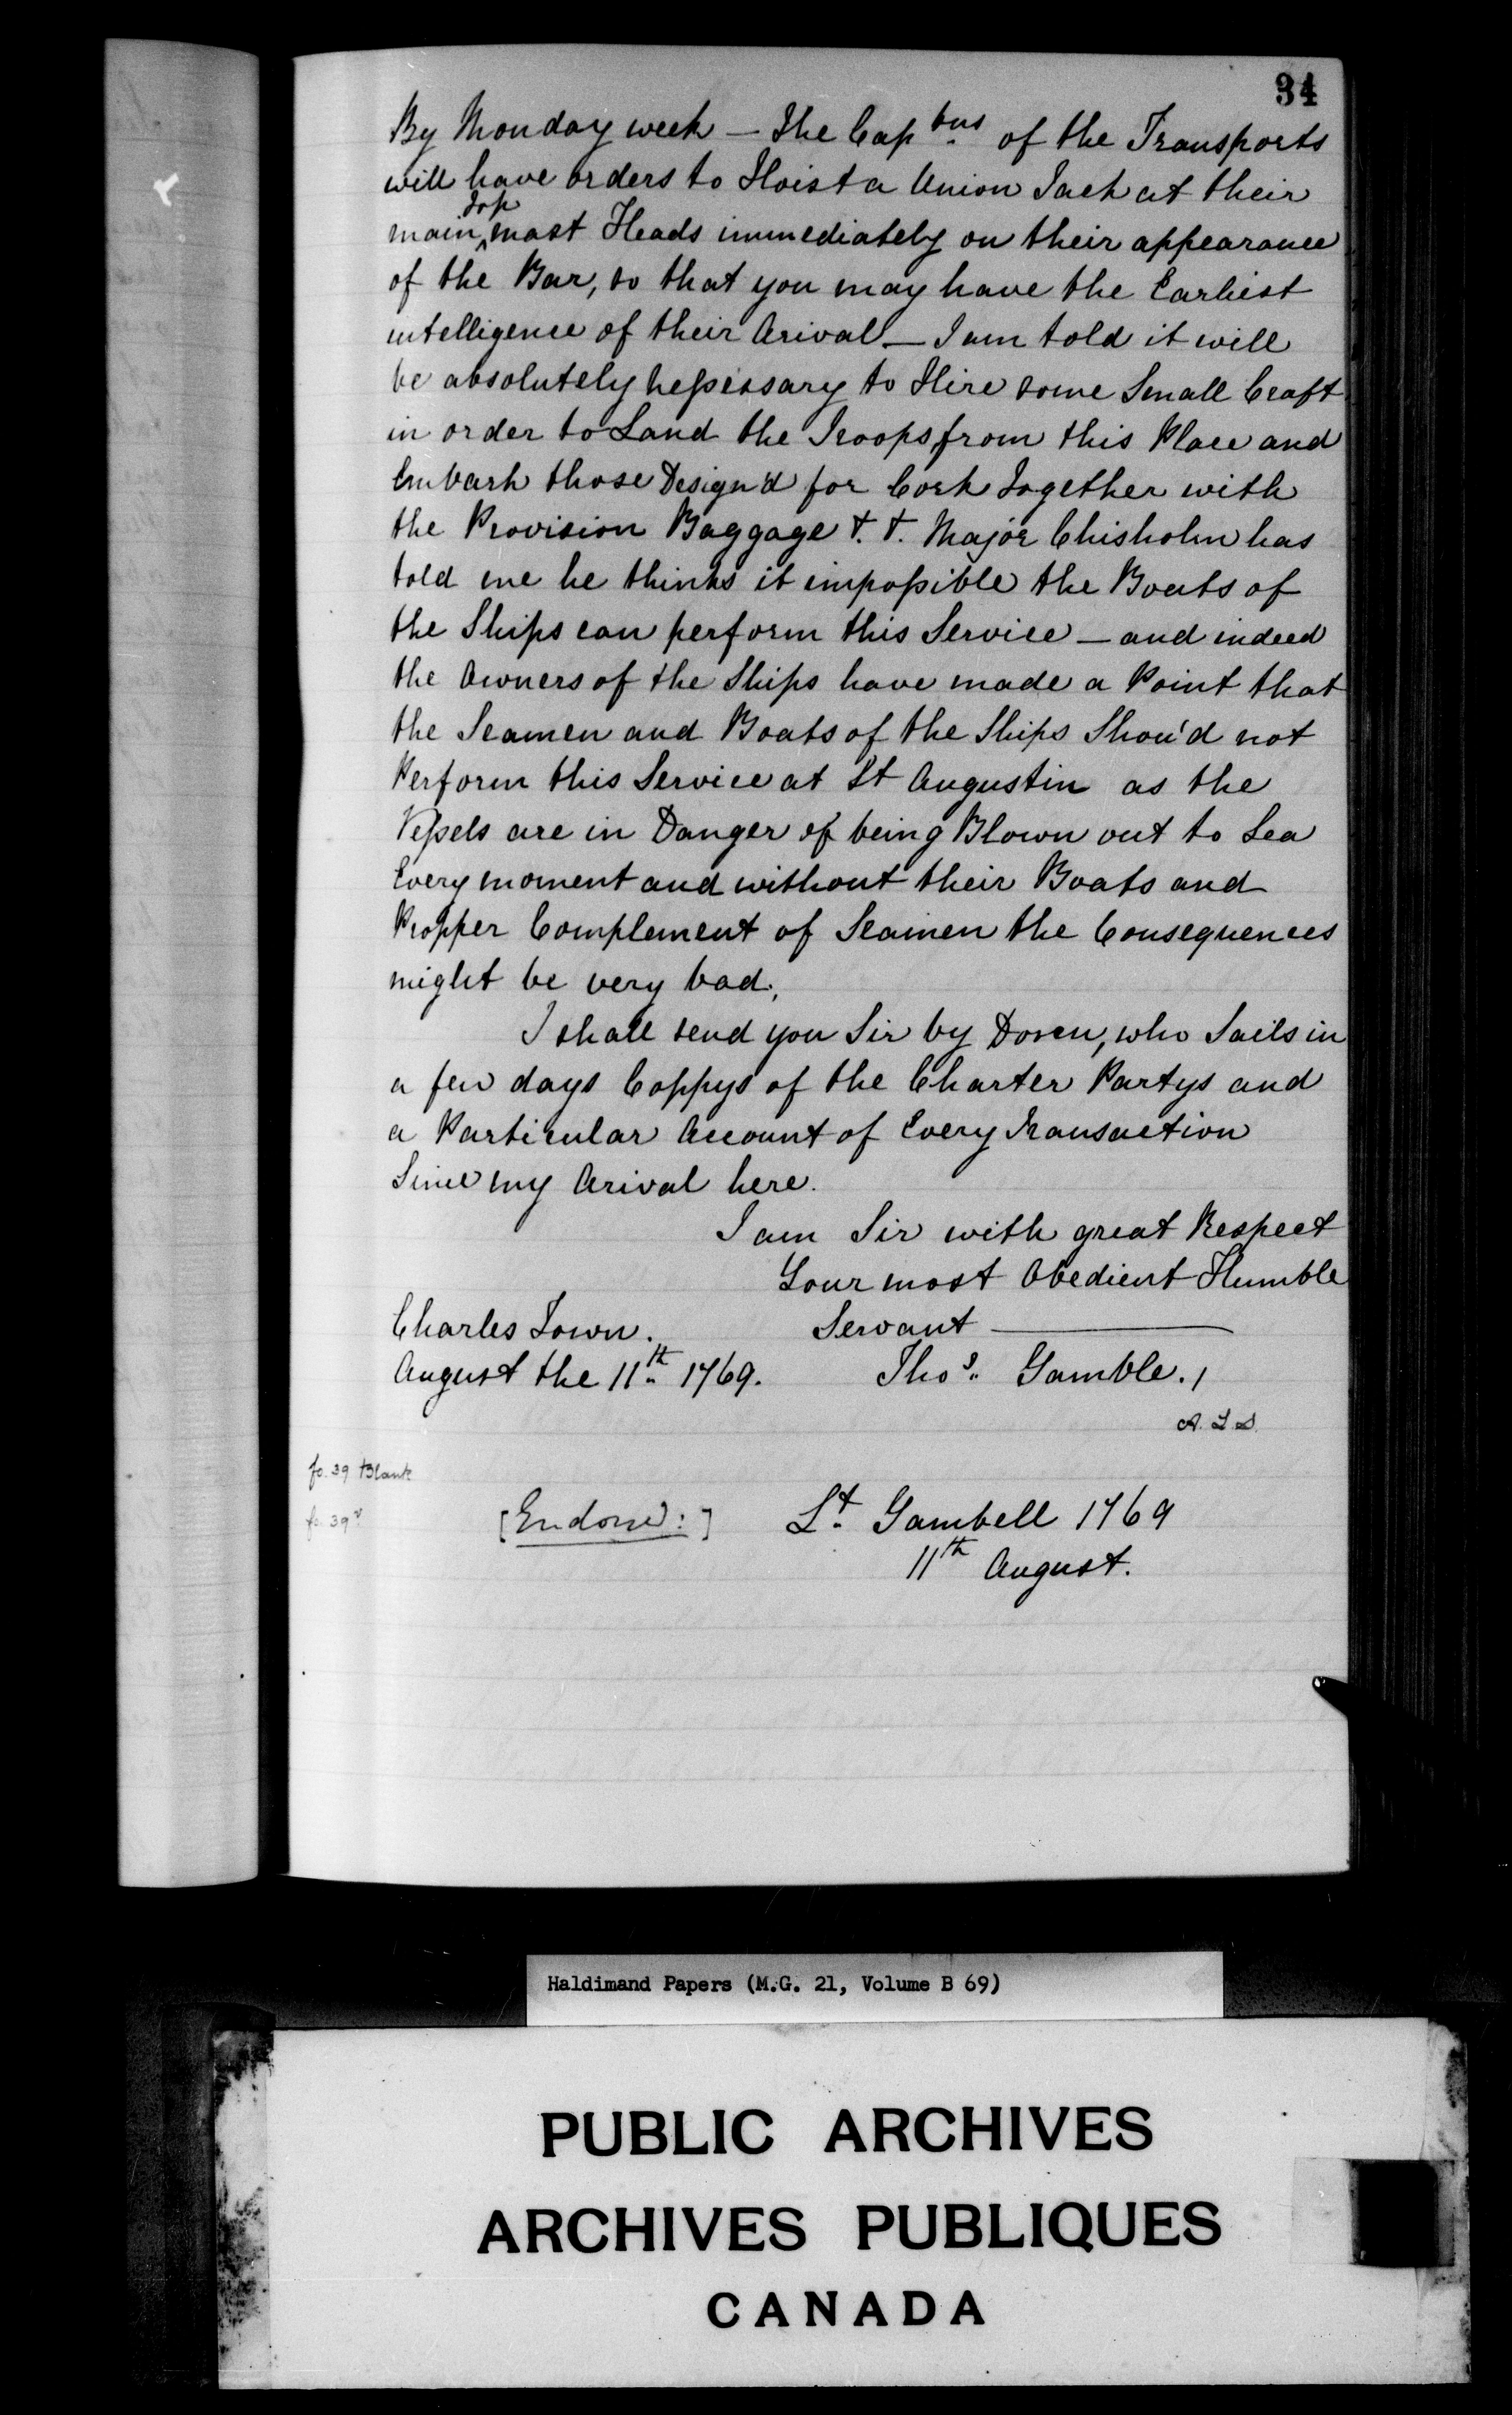 34
By Monday week — The Cap tns of the Transports
will have orders to Hoist a Union Jack at their
main ^top mast Heads immediately on their appearance
of the Bar, so that you may have the Earliest
intelligence of their Arival — I am told it will
be absolutely nessessary to Hire some Small Craft
in order to Land the Troops from this Place and
Embark those Design'd for Cork Together with
the Provision Baggage &. &. Major Chisholm has
told me he thinks it impossible the Boats of
the Ships can perform this Service — and indeed
the Owners of the Ships have made a Point that
the Seamen and Boats of the Ships Shou'd not
Perform this Service at St Augustin as the
Vessels are in Danger of being Blown out to Sea
Every moment and without their Boats and
Propper Complement of Seamen the Consequences
might be very bad.,
I shall send you Sir by , who Sails in
a few days Coppys of the Charter Partys and
a Particular Account of Every Transaction
Since my Arival here.
I am Sir with great Respect
Your most Obedient Humble
Servant —
Charles Town.
August the 11th 1769.
Thos. Gamble.,
A. L. S.
fo. 39 Blank
fo. 39v
[Endorse:]
Lt. Gambell 1769
11th August.
Haldimand Papers (M.G. 21, Volume B 69)
PUBLIC ARCHIVES
ARCHIVES PUBLIQUES
CANADA